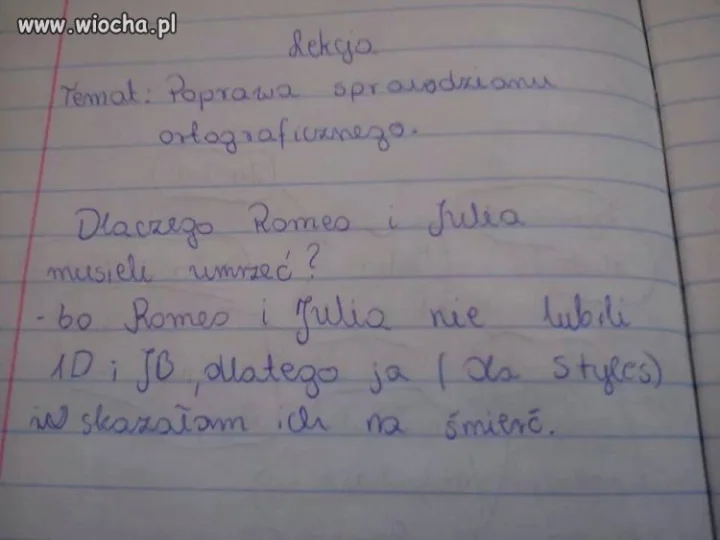 www.wiocha.pl
Lekcja
Temat: Poprawa sprawdzianu
ortograficznego.
Dlaczego Romeo i Julia
musieli umrzeć?
- bo Romeo i Julia nie lubili
1D i JB, dlatego ja ( Ola Styles)
skazałam ich na śmierć.